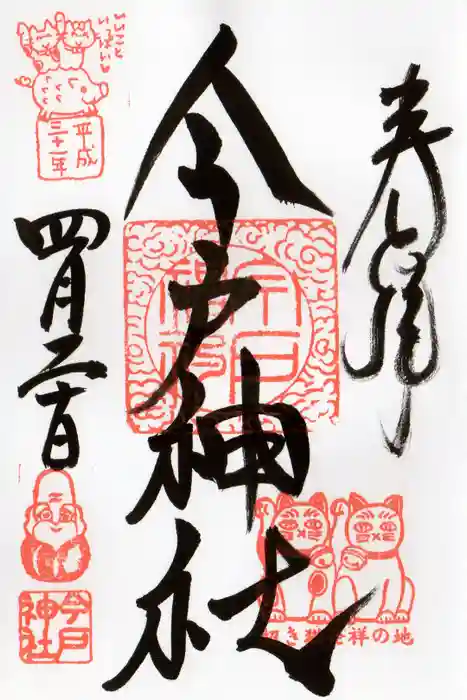 奉拝
今戸神社
いいこと
いっぱい
平成
三十一年
四月二十日
今戸
神社
今戸
神社
招き猫発祥の地